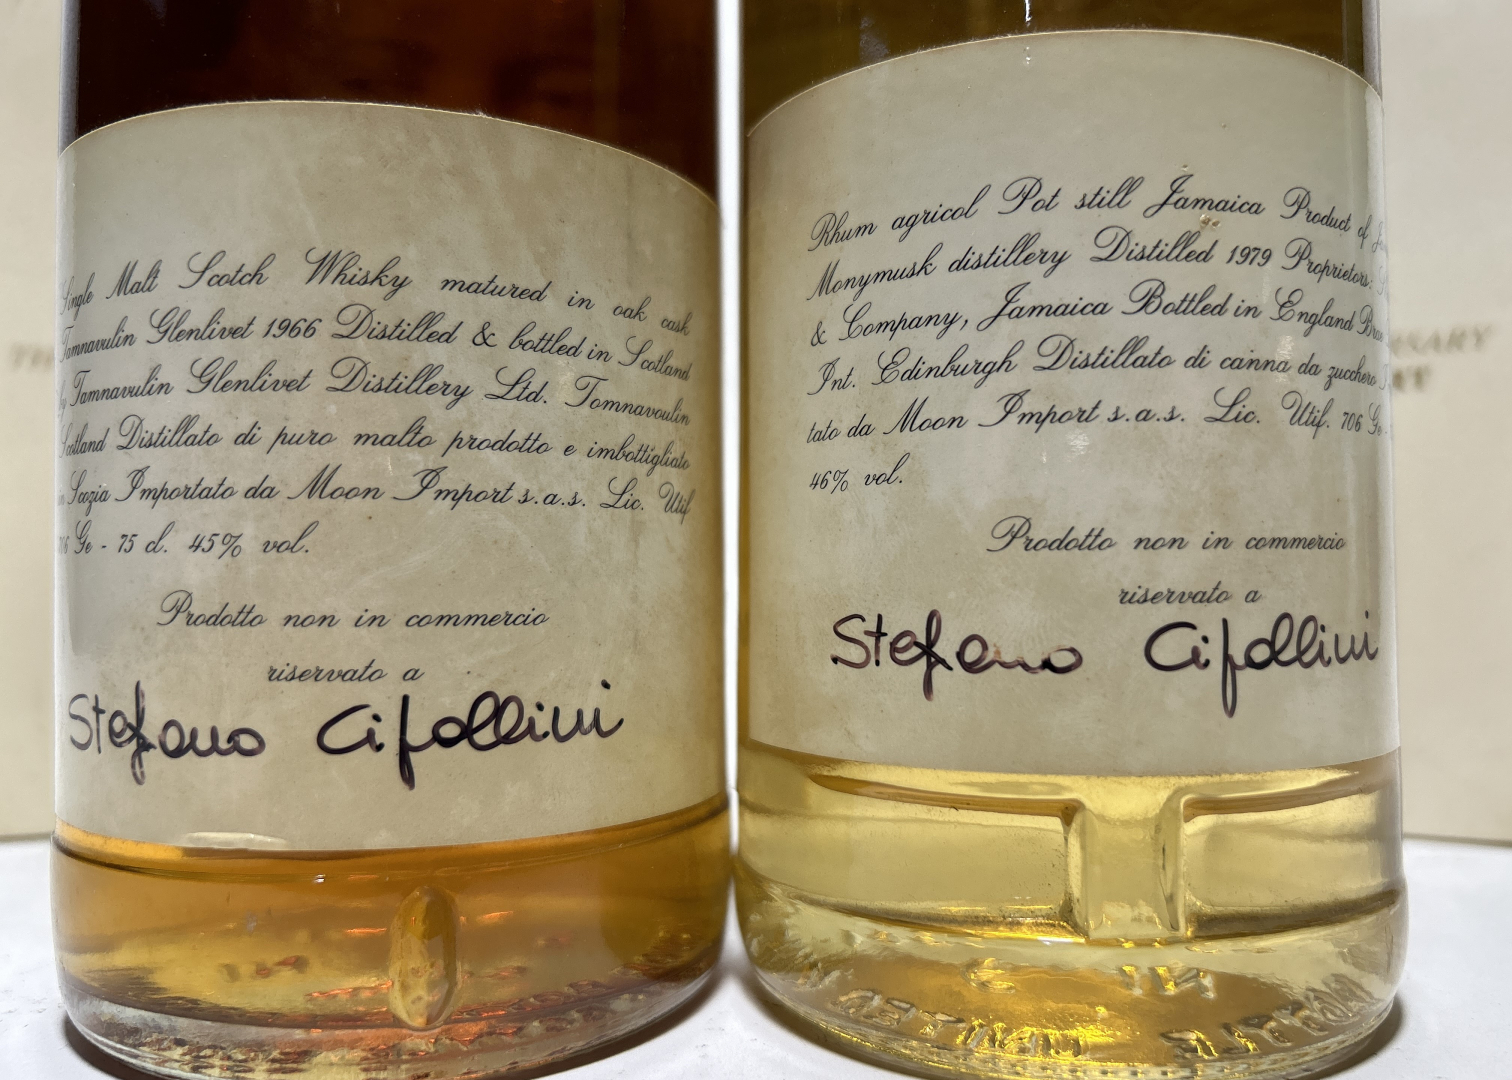 Single Malt Scotch Whisky matured in oak cask
Tamnavulin Glenlivet 1966 Distilled & bottled in Scotland
by Tamnavulin Glenlivet Distillery Ltd. Tomnavoulin
Scotland Distillato di puro malto prodotto e imbottigliato
in Scozia Importato da Moon Import s.a.s. Lic. Utif
Ge - 75 cl. 45% vol.
Prodotto non in commercio
riservato a
Stefano Cifollini
Rhum agricol Pot still Jamaica Product of
Monymusk distillery Distilled 1979 Proprietors:
& Company, Jamaica Bottled in England
Int. Edinburgh Distillato di canna da zucchero
tato da Moon Import s.a.s. Lic. Utif. 706 Ge
46% vol.
Prodotto non in commercio
riservato a
Stefano Cifollini